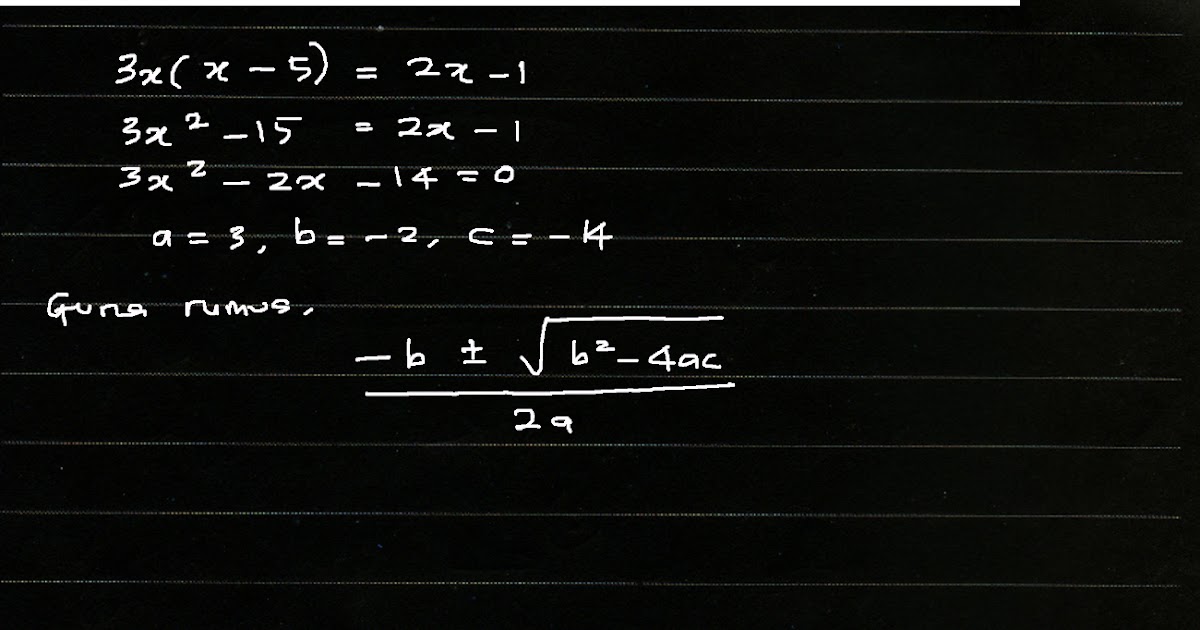 3x(x - 5) = 2x - 1
3x² - 15 = 2x - 1
3x² - 2x - 14 = 0
a = 3, b = -2, c = -14
Guna rumus,
-b ± √(b² - 4ac)
2a